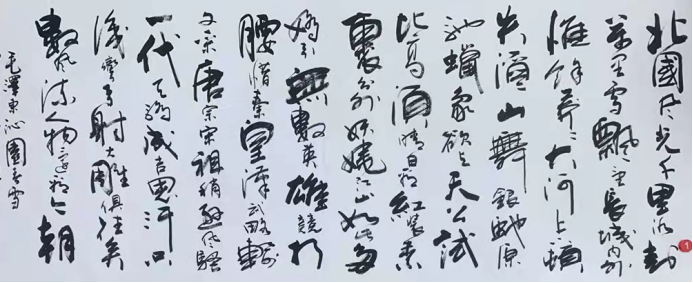 北國风光千里冰封
萬里雪飄望長城内外
惟餘莽〻大河上下頓
失滔〻山舞銀蛇原
馳蠟象欲与天公試
比高須晴日看紅装素
裹分外妖嬈江山如此多
嬌引無數英雄競折
腰惜秦皇漢武略輸
文采唐宗宋祖稍遜风騷
一代天驕成吉思汗只
識彎弓射大雕俱往矣
數风流人物還看今朝
毛澤東沁園春雪
1